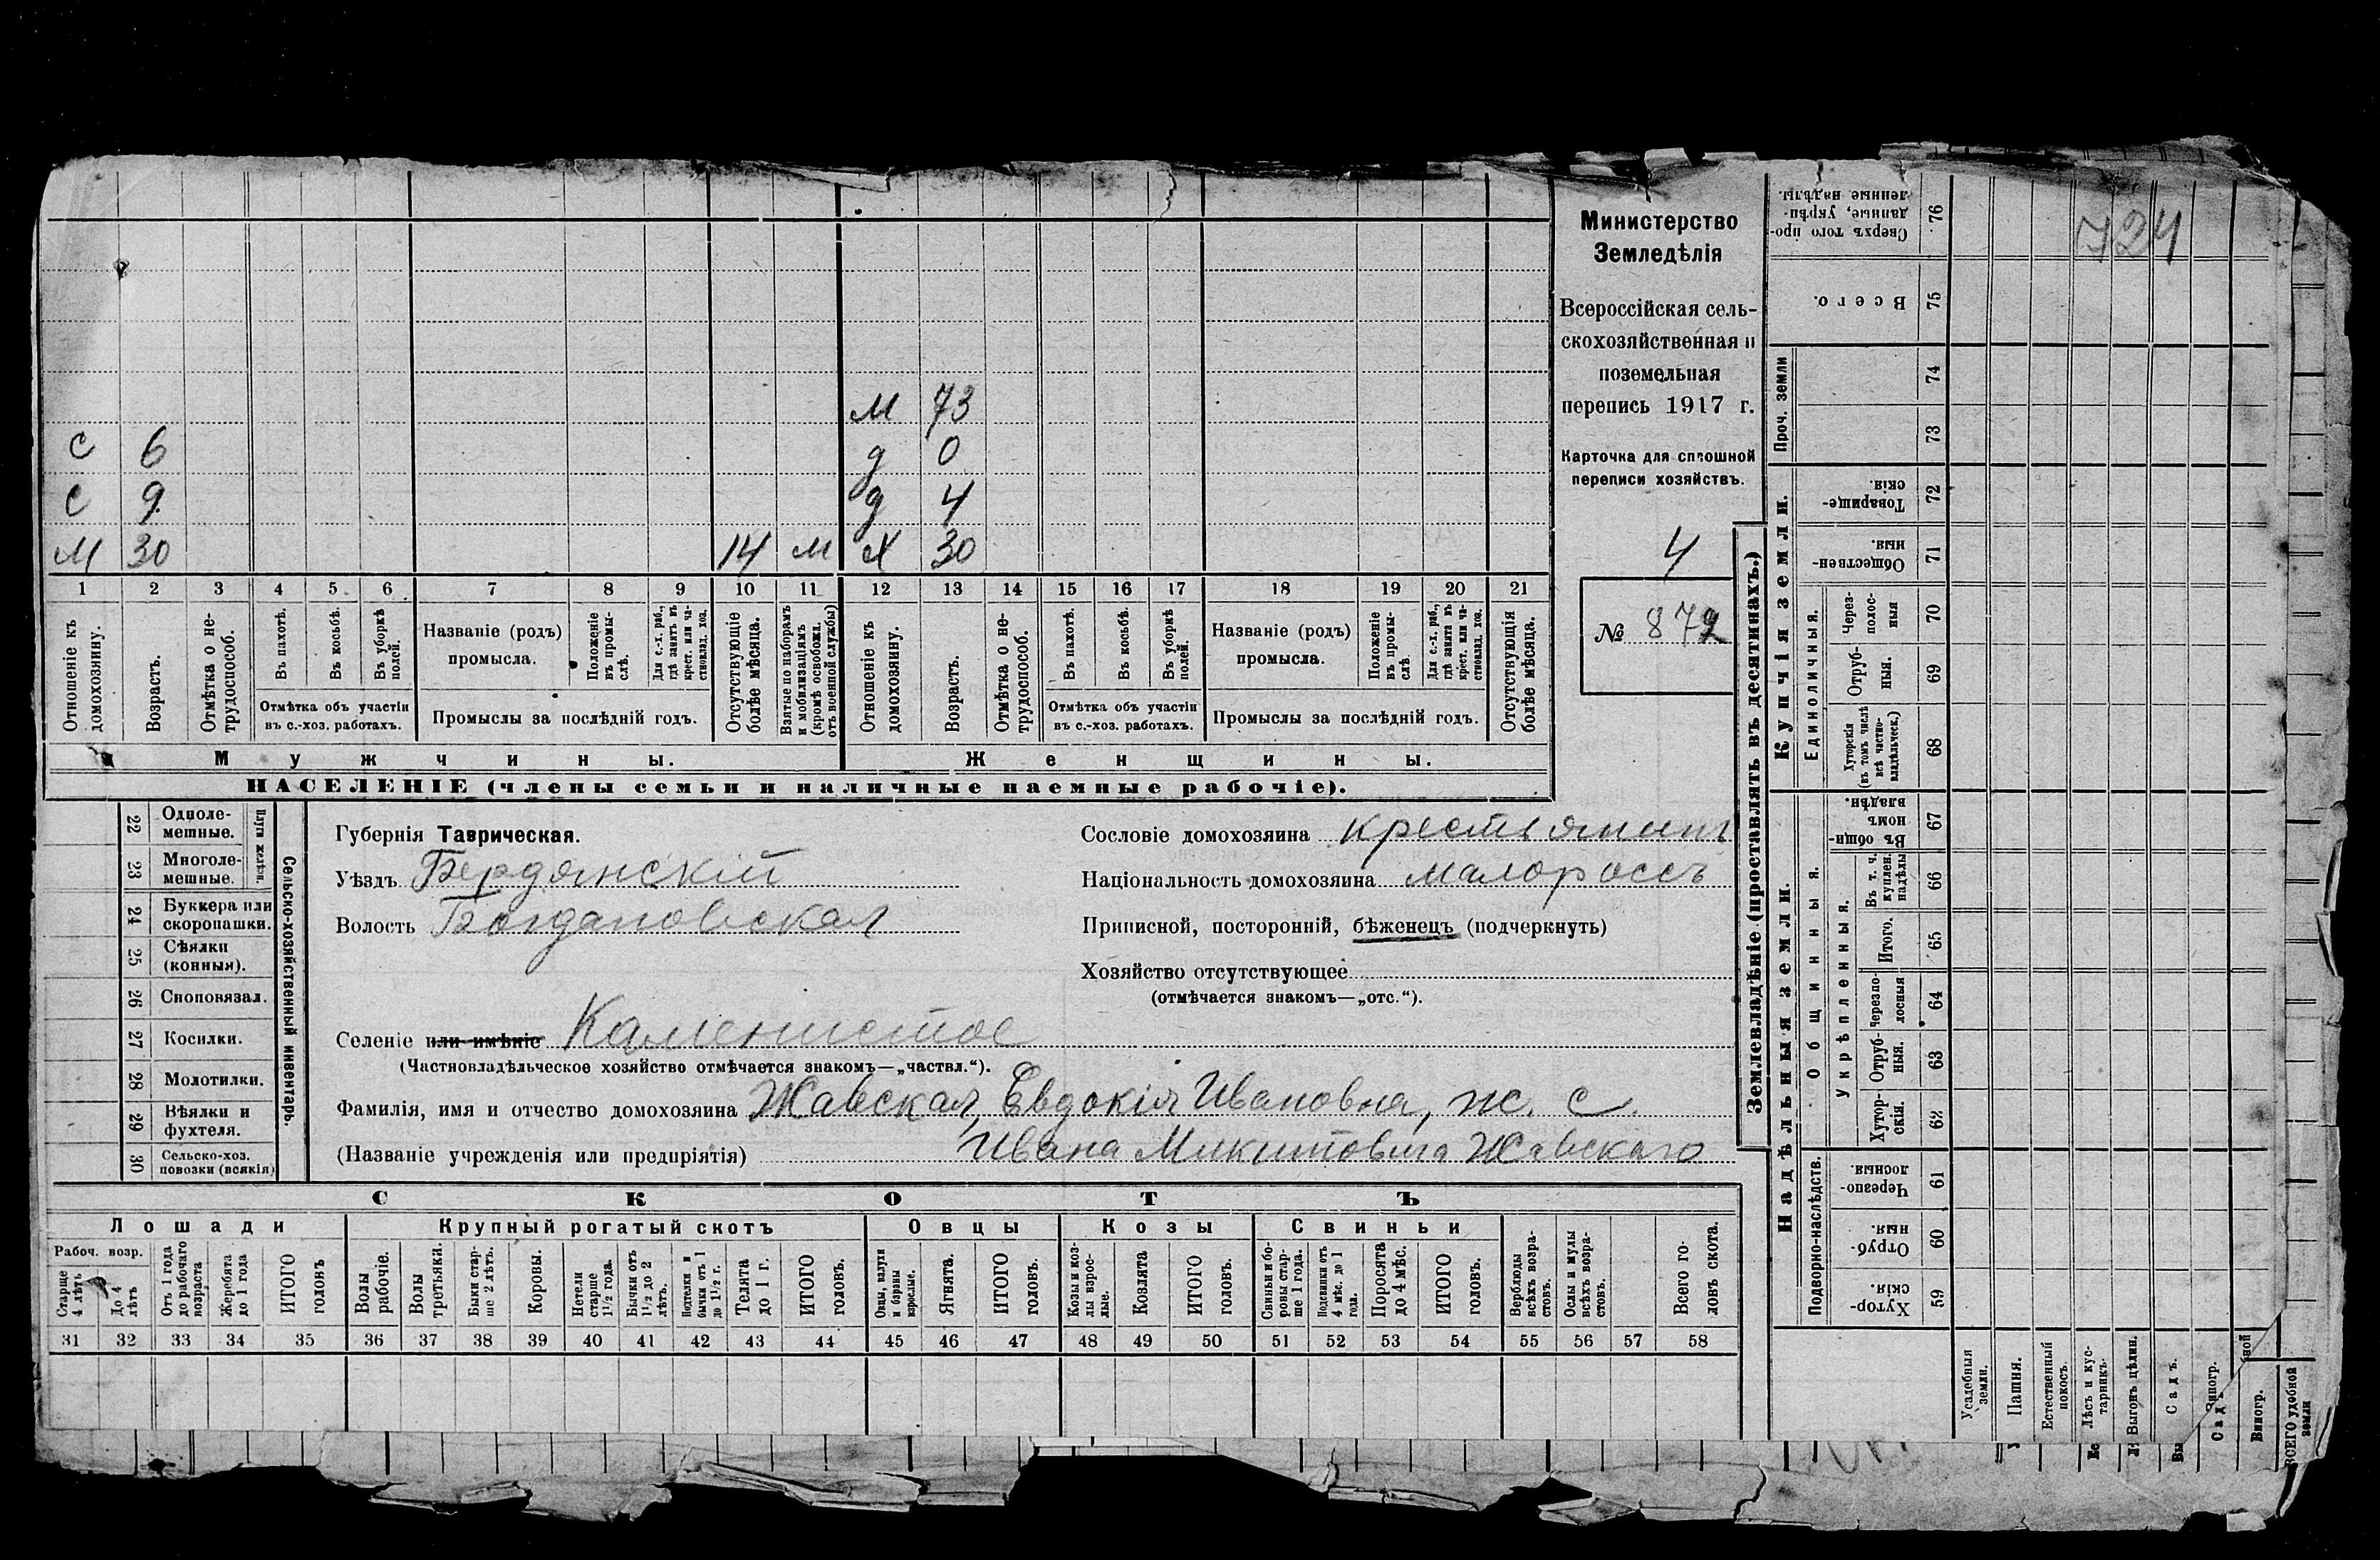 724
Министерство
Земледѣлія
Всероссійская сель-
скохозяйственная и
поземельная
перепись 1917 г.
Карточка для сплошной
переписи хозяйствъ.
4
№ 872
М 73
С 6 д 0
С 9 д 4
М 30 14 М Х 30
1 2 3 4 5 6 7 8 9 10 11 12 13 14 15 16 17 18 19 20 21
Отношеніе къ домохозяину.
Возрастъ.
Отмѣтка о не-трудоспособ.
Въ пахотѣ.
Въ косьбѣ.
Въ уборкѣ полей.
Отмѣтка объ участіи
въ с.-хоз. работахъ.
Названіе (родъ)
промысла.
Положеніе въ промы-слѣ.
Для с.-х. раб., гдѣ занятъ въ крест. или ча-стновлад. хоз.
Промыслы за послѣдній годъ.
Отсутствующіе болѣе мѣсяца.
Взятые по наборамъ и мобилизаціямъ (кромѣ освобожд. отъ военной службы)
Отношеніе къ домохозяину.
Возрастъ.
Отмѣтка о не-трудоспособ.
Въ пахотѣ.
Въ косьбѣ.
Въ уборкѣ полей.
Отмѣтка объ участіи
въ с.-хоз. работахъ.
Названіе (родъ)
промысла.
Положеніе въ промы-слѣ.
Для с.-х. раб., гдѣ занята въ крест. или ча-стновлад. хоз.
Промыслы за послѣдній годъ.
Отсутствующія болѣе мѣсяца.
Мужчины. Женщины.
НАСЕЛЕНІЕ (члены семьи и наличные наемные рабочіе).
Сельско-хозяйственный инвентарь.
Плуги желѣзн.
22 Одноле-мешные.
23 Многоле-мешные.
24 Буккера или скоропашки.
25 Сѣялки (конныя).
26 Сноповязал.
27 Косилки.
28 Молотилки.
29 Вѣялки и фухтеля.
30 Сельско-хоз. повозки (всякія)
Губернія Таврическая.
Уѣздъ Бердянскій
Волость Богдановская
Сословіе домохозяина крестьянинъ
Національность домохозяина малороссъ
Приписной, посторонній, бѣженецъ (подчеркнуть)
Хозяйство отсутствующее
(отмѣчается знакомъ—„отс.“).
Селеніе или имѣніе Каменистое
(Частновладѣльческое хозяйство отмѣчается знакомъ—„частвл.“).
Фамилія, имя и отчество домохозяина Жавская, Евдокія Ивановна, ж. с.
(Названіе учрежденія или предпріятія) Ивана Микитовича Жавскаго
СКОТЪ
Лошади Крупный рогатый скотъ Овцы Козы Свиньи
Рабоч. возр.
Старше 4 лѣтъ
До 4 лѣтъ
Отъ 1 года до рабочаго возраста
Жеребята до 1 года
ИТОГО головъ
Волы рабочіе.
Волы третьяки.
Быки стар-ше 2 лѣтъ.
Коровы.
Нетели старше 1½ года.
Бычки отъ 1½ до 2 лѣтъ.
Нетелки и бычки отъ 1 до 1½ г.
Телята до 1 г.
ИТОГО головъ.
Овцы, валухи и бараны взрослые.
Ягнята.
ИТОГО головъ.
Козы и коз-лы взрос-лые.
Козлята
ИТОГО головъ.
Свиньи и бо-ровы стар-ше 1 года.
Подсвинки отъ 4 мѣс. до 1 года.
Поросята до 4 мѣс.
ИТОГО головъ.
Верблюды всѣхъ возра-стовъ.
Ослы и мулы всѣхъ возра-стовъ.
Всего го-ловъ скота.
31 32 33 34 35 36 37 38 39 40 41 42 43 44 45 46 47 48 49 50 51 52 53 54 55 56 57 58
Землевладѣніе (проставлять въ десятинахъ.)
Надѣльныя земли.
Купчія земли.
Проч. земли
Подворно-наслѣдств.
Общинныя.
Укрѣпленныя.
Единоличныя.
Сверхъ того про-данные, укрѣп-ленные надѣлы. 76
Всего. 75
74
73
Товарище-скія. 72
Обществен-ныя. 71
Через-полос-ныя 70
Отруб-ныя. 69
Хуторскія (въ томъ числѣ всѣ частно-владѣльческ.) 68
Въ общин-номъ владѣн. 67
Въ т. ч. куплен. надѣлы 66
Итого. 65
Черезпо-лосныя 64
Отруб-ныя. 63
Хутор-скія. 62
Черезпо-лосныя. 61
Отруб-ныя. 60
Хутор-скія. 59
Усадебныя земли.
Пашня.
Естественный покосъ.
Лѣсъ и кус-тарникъ.
Выгонъ цѣлин.
Садъ.
Виногр.
Сад
Виногр.
ВСЕГО удобной земли